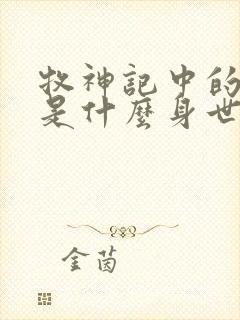 牧神記中的
是什麼身世
金茵